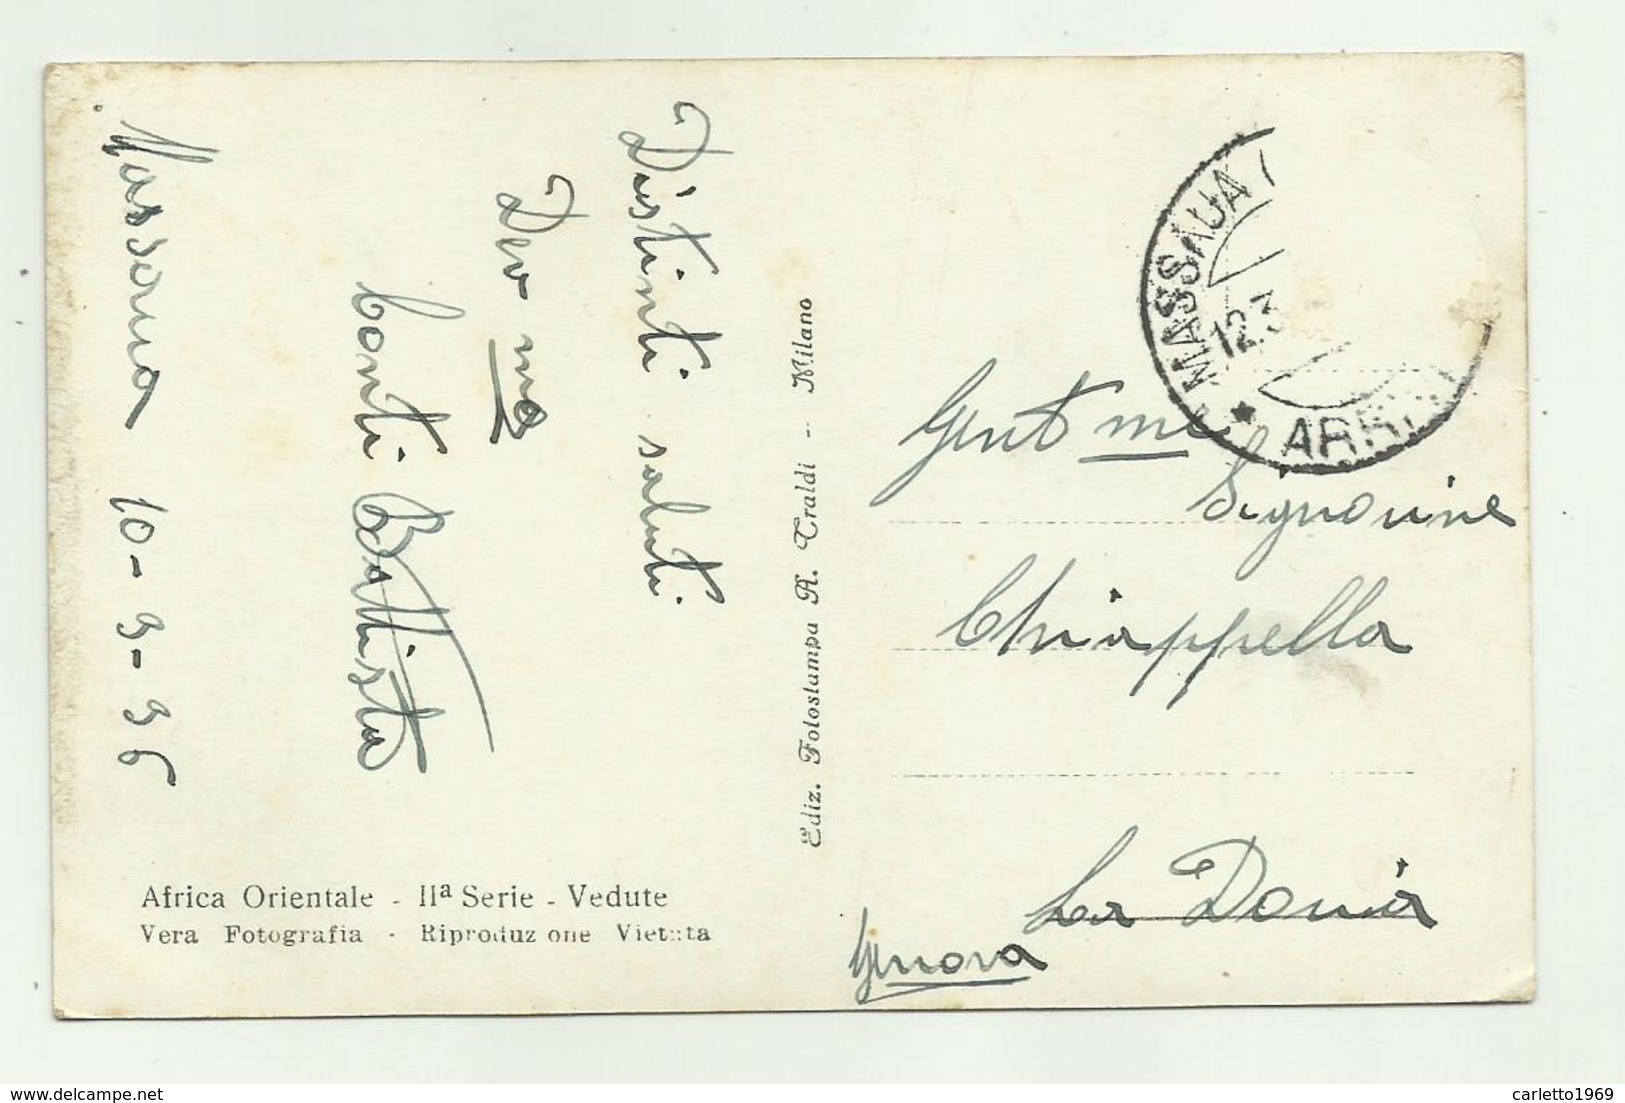 Massaua 10-3-36
Distinti saluti
Dev mo
Conti Battista
Africa Orientale - IIa Serie - Vedute
Vera Fotografia - Riproduzione Vietata
Ediz. Fotostampa A. Traldi - Milano
MASSAUA
12.3
ARRIV
Gent me
Signorine
Chiappella
La Doria
Genova
delcampe.net
carletto1969